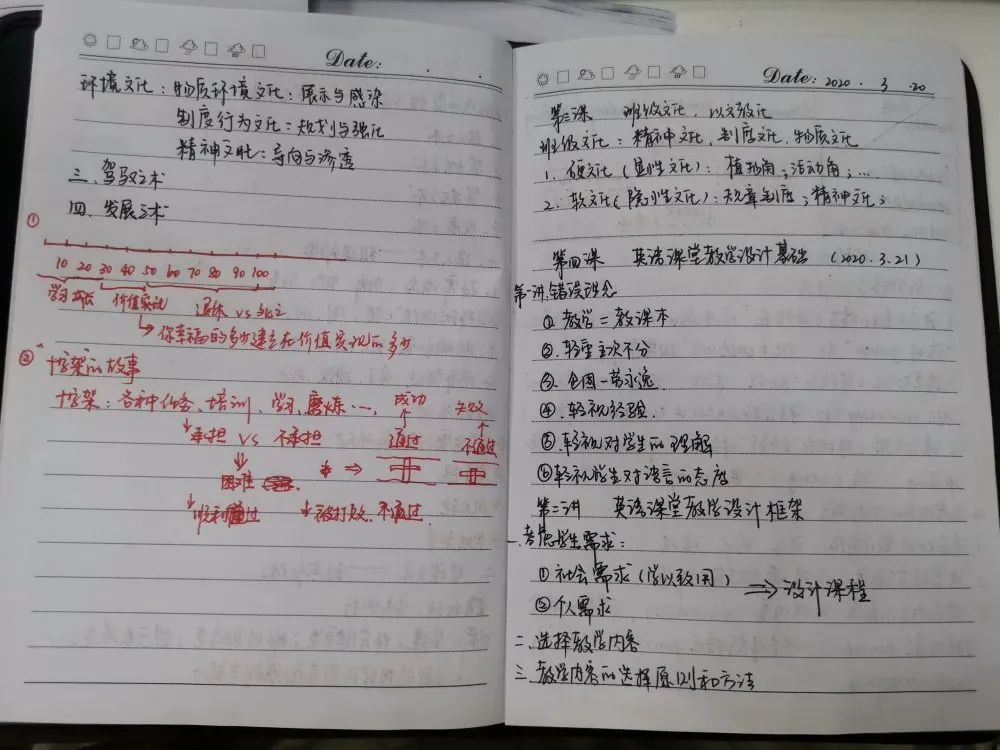 Date: . .
环境文化：物质环境文化：展示与感染
制度行为文化：规划与强化
精神文化：导向与渗透
三、驾驭之术
四、发展之术
①
10 20 30 40 50 60 70 80 90 100
学习成长 价值实现 退休 vs
↳ 你幸福的多少建立在价值实现的多少
② 十字架的故事
十字架：各种任务、培训、学习、磨炼…
成功 失败
承担 vs 不承担 通过 不通过
困难 ⇒
顺利通过 被打败、不通过
Date: 2020 . 3 . 20
第三课 班级文化，以文教化
班级文化：精神文化、制度文化、物质文化
1. 硬文化（显性文化）：植物角；活动角；…
2. 软文化（隐性文化）：规章制度；精神文化；
第四课 英语课堂教学设计基础 （2020.3.21）
第一讲 错误理念
① 教学=教课本
②. 轻重主次不分
③. 全国一节示范
④. 轻视经验.
⑤. 轻视对学生的理解
⑥ 轻视学生对语言的态度
第二讲 英语课堂教学设计框架
一. 考虑学生需求：
① 社会需求（学以致用） ⇒ 设计课程
② 个人需求
二. 选择教学内容
三. 教学内容的选择原则和方法